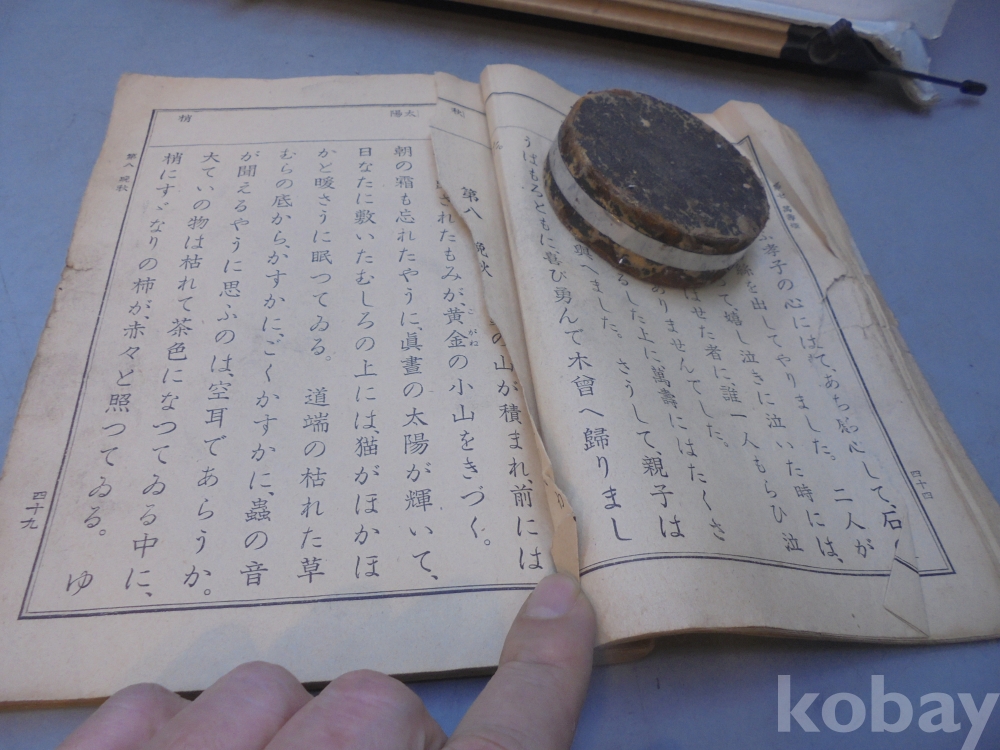 孝子の心には
を出してやりました。二人が
て、嬉し泣きに泣いた時には、
はせた者に、誰一人もらひ泣
ありませんでした。
るした上に、萬壽にはたくさ
へました。さうして、親子は
うばもろともに、喜び勇んで木曾へ歸りまし
第八 晩秋
の山が積まれ、前には
されたもみが、黄金の小山をきづく。
こがね
朝の霜も忘れたやうに、眞晝の太陽が輝いて、
日なたに敷いたむしろの上には、猫がほかほ
かと暖さうに眠つてゐる。 道端の枯れた草
むらの底から、かすかに、ごくかすかに、蟲の音
が聞えるやうに思ふのは、空耳であらうか。
大ていの物は枯れて茶色になつてゐる中に、
梢にすゞなりの柿が、赤々と照つてゐる。 ゆ
太陽
梢
第八 晩秋
四十九
kobay